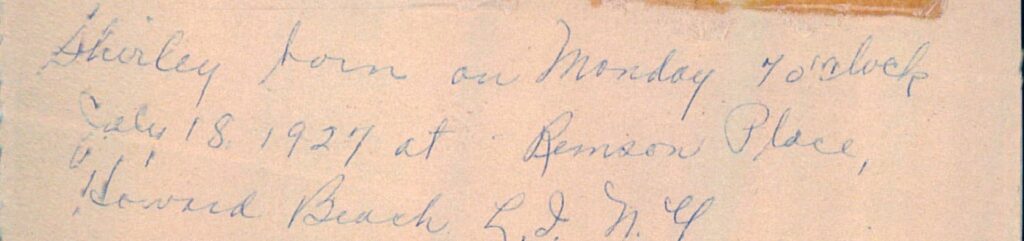 Shirley born on Monday 7 o'clock
July 18. 1927 at Remson Place,
Howard Beach L.I. N.Y